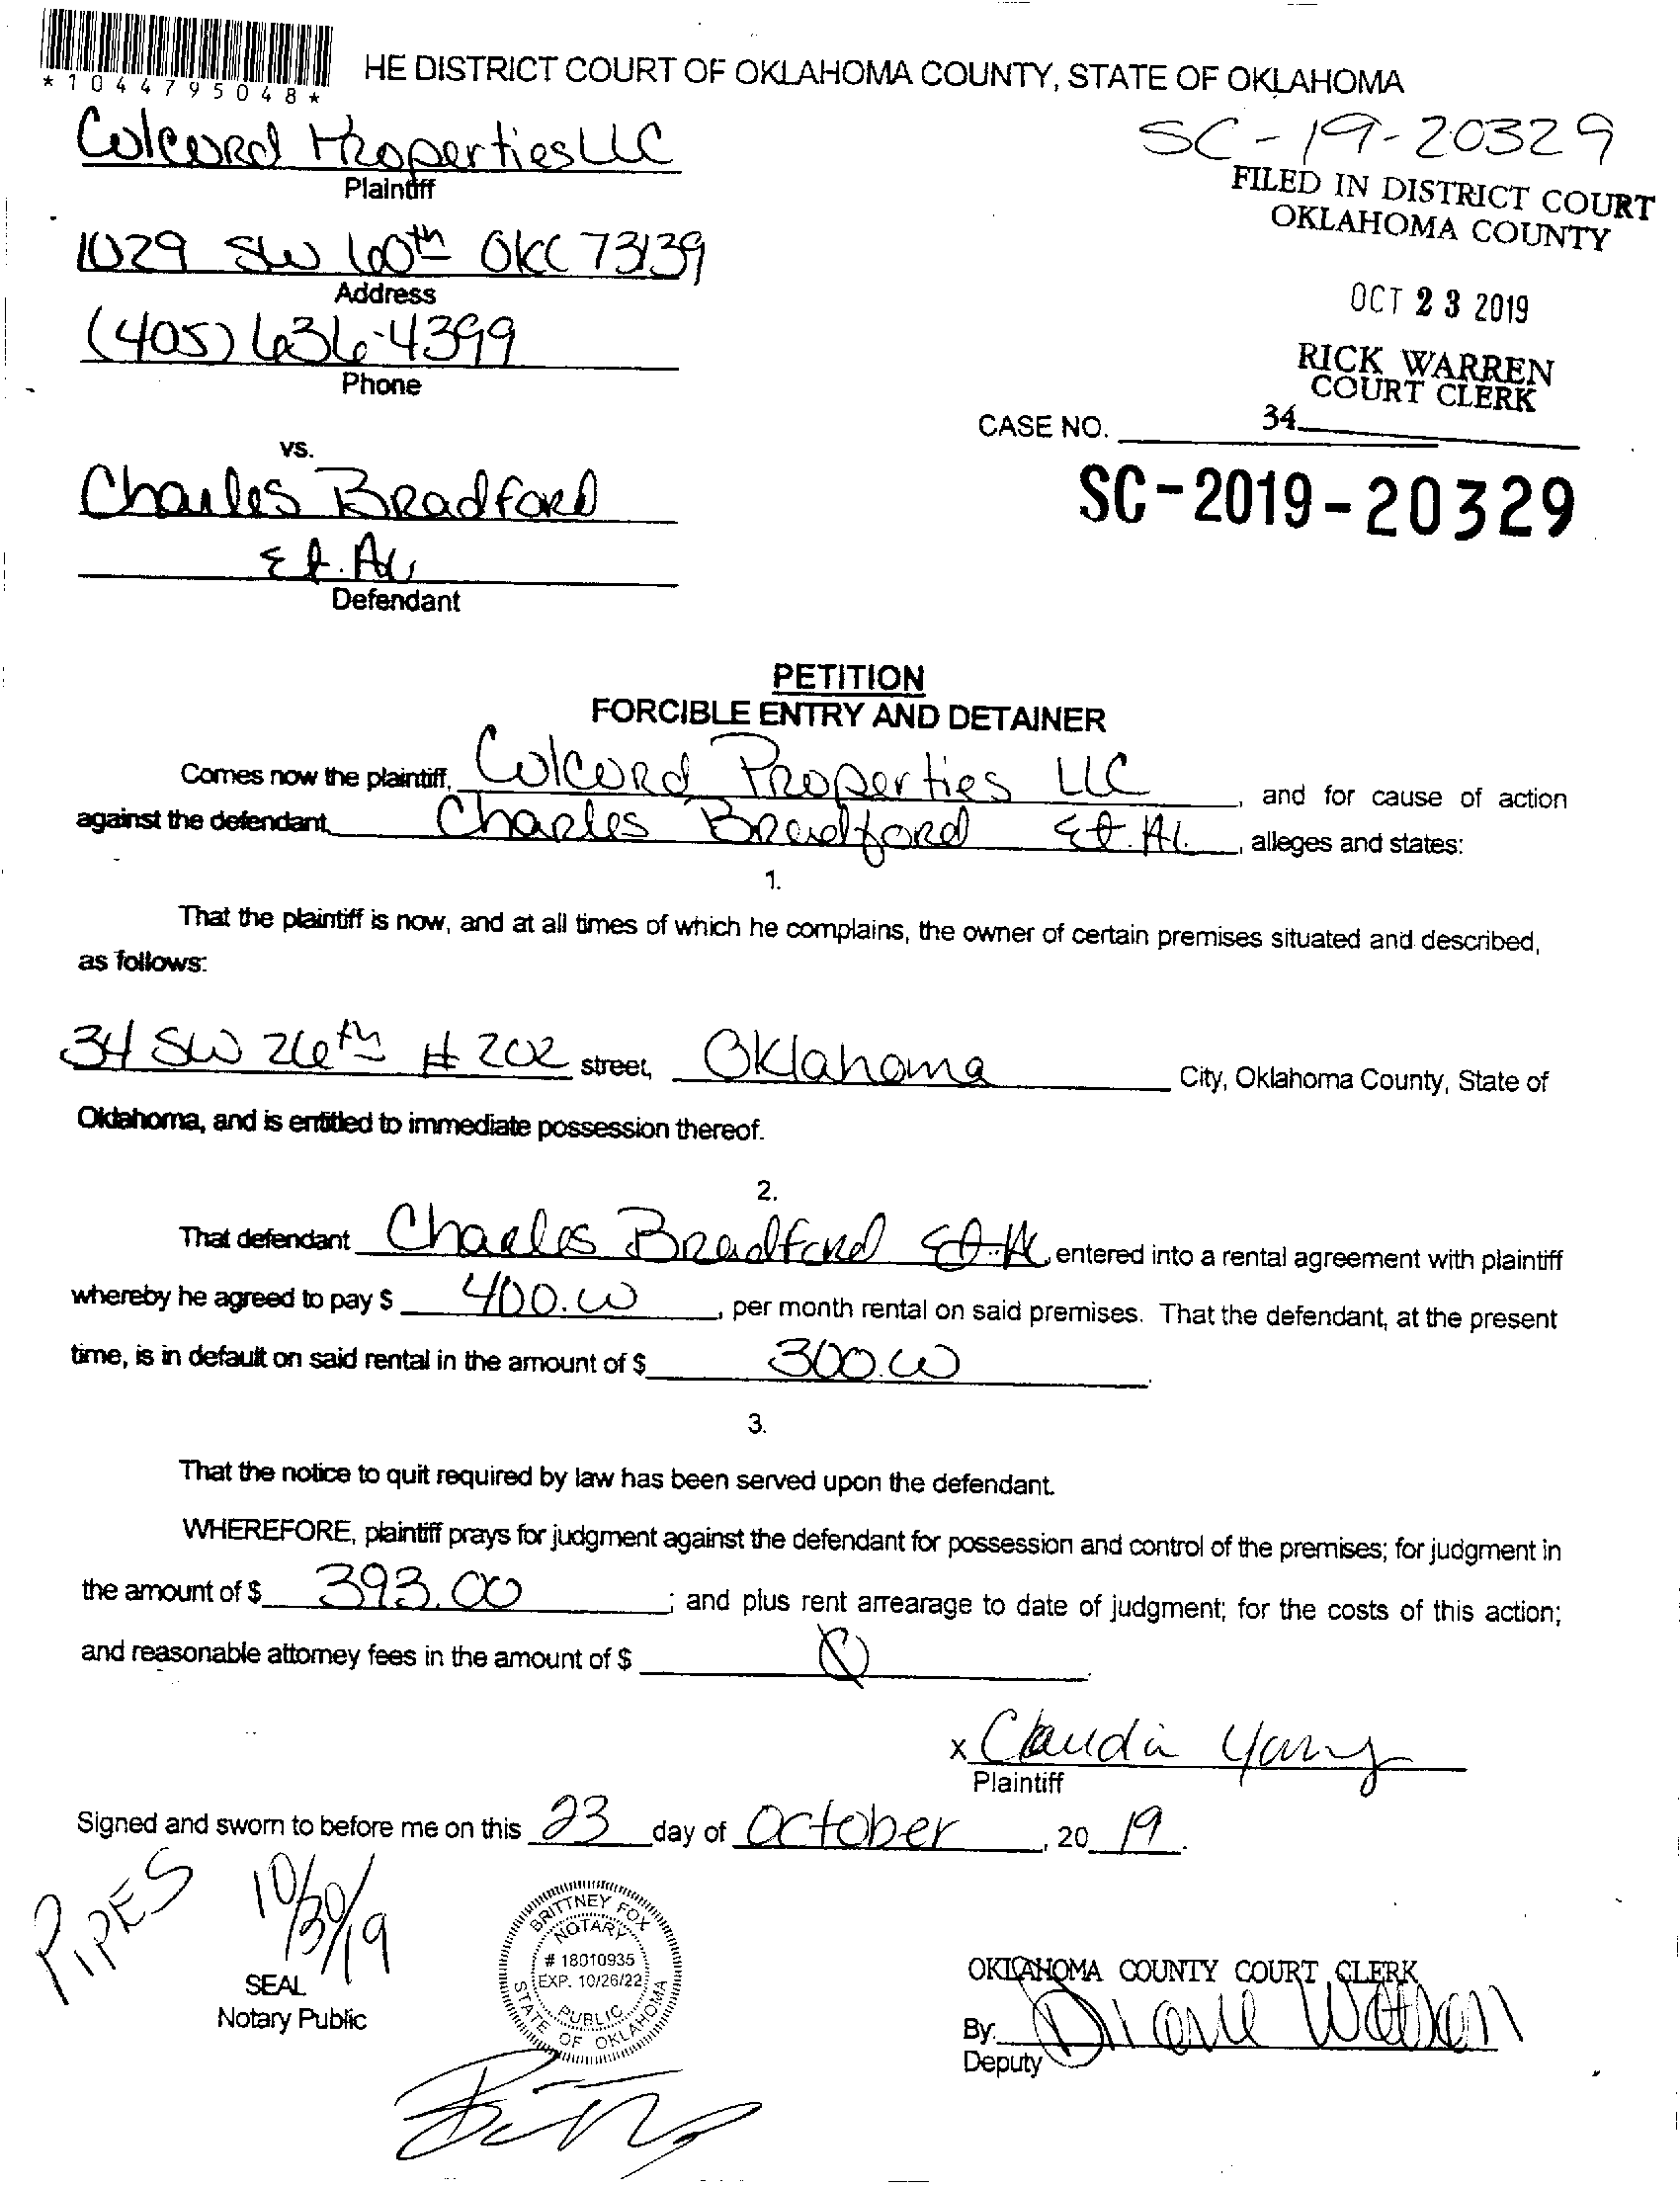 *1044795048*
HE DISTRICT COURT OF OKLAHOMA COUNTY, STATE OF OKLAHOMA
Colcord Properties LLC
Plaintiff
SC-19-20329
FILED IN DISTRICT COURT
OKLAHOMA COUNTY
1029 SW 60th OKC 73139
Address
OCT 23 2019
(405) 636-4399
Phone
RICK WARREN
COURT CLERK
34
CASE NO.
vs.
SC-2019-20329
Charles Bradford
Et. Al
Defendant
PETITION
FORCIBLE ENTRY AND DETAINER
Comes now the plaintiff, Colcord Properties LLC, and for cause of action
against the defendant, Charles Bradford Et. Al., alleges and states:
1.
That the plaintiff is now, and at all times of which he complains, the owner of certain premises situated and described,
as follows:
34 SW 26th # 202 street, Oklahoma City, Oklahoma County, State of
Oklahoma, and is entitled to immediate possession thereof.
2.
That defendant Charles Bradford Et. Al, entered into a rental agreement with plaintiff
whereby he agreed to pay $ 400.00, per month rental on said premises. That the defendant, at the present
time, is in default on said rental in the amount of $ 300.00.
3.
That the notice to quit required by law has been served upon the defendant.
WHEREFORE, plaintiff prays for judgment against the defendant for possession and control of the premises; for judgment in
the amount of $ 393.00; and plus rent arrearage to date of judgment; for the costs of this action;
and reasonable attorney fees in the amount of $ 0.
x Claudia Yang
Plaintiff
Signed and sworn to before me on this 23 day of October, 2019.
PIPES 10/30/19
BRITTNEY FOX
NOTARY
# 18010935
EXP. 10/26/22
PUBLIC
STATE OF OKLAHOMA
SEAL
Notary Public
OKLAHOMA COUNTY COURT CLERK
By: Diane
Deputy